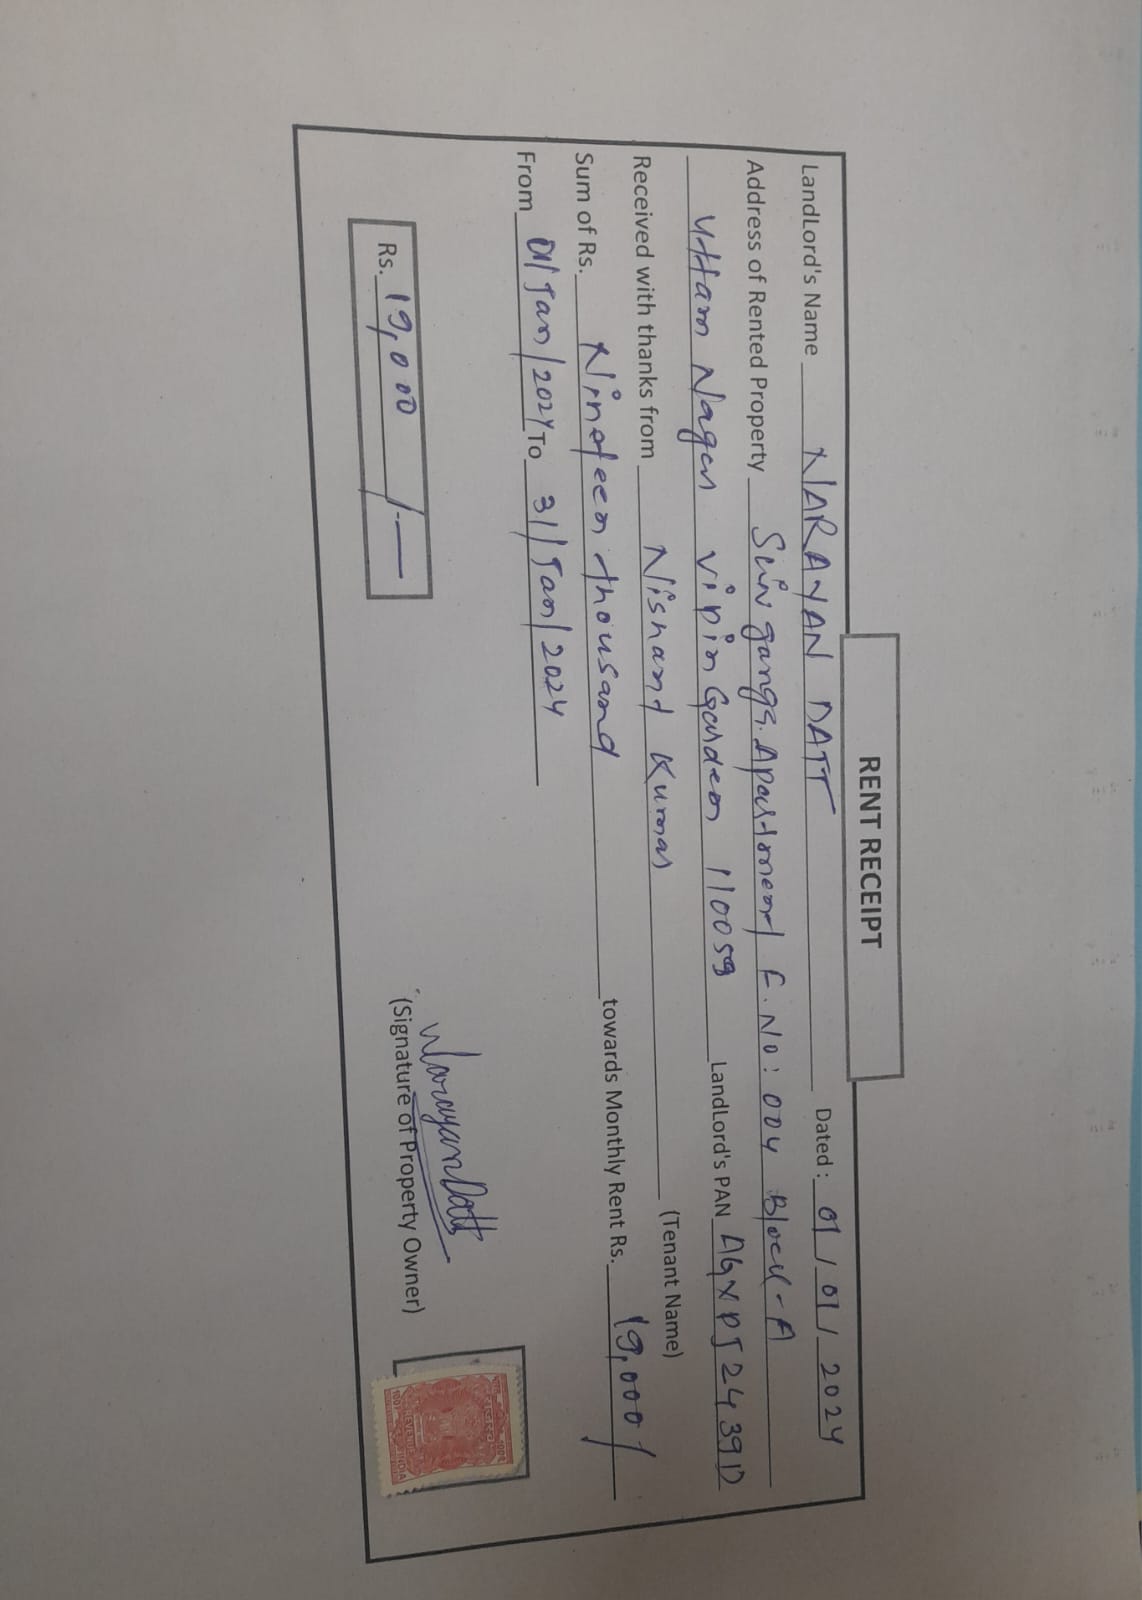 RENT RECEIPT
LandLord's Name NARAYAN DATT Dated : 01/01/2024
Address of Rented Property Apartment F.No: 004 Block-A
Uttam Nagar vipin Garden 110059 LandLord's PAN AGXPJ2439D
Received with thanks from Nishant Kumar (Tenant Name)
Sum of Rs. Nineteen thousand towards Monthly Rent Rs. 19,000/
From 01/Jan/2024 To 31/Jan/2024
Rs. 19,000/-
NarayanDatt
(Signature of Property Owner)
REVENUE
INDIA